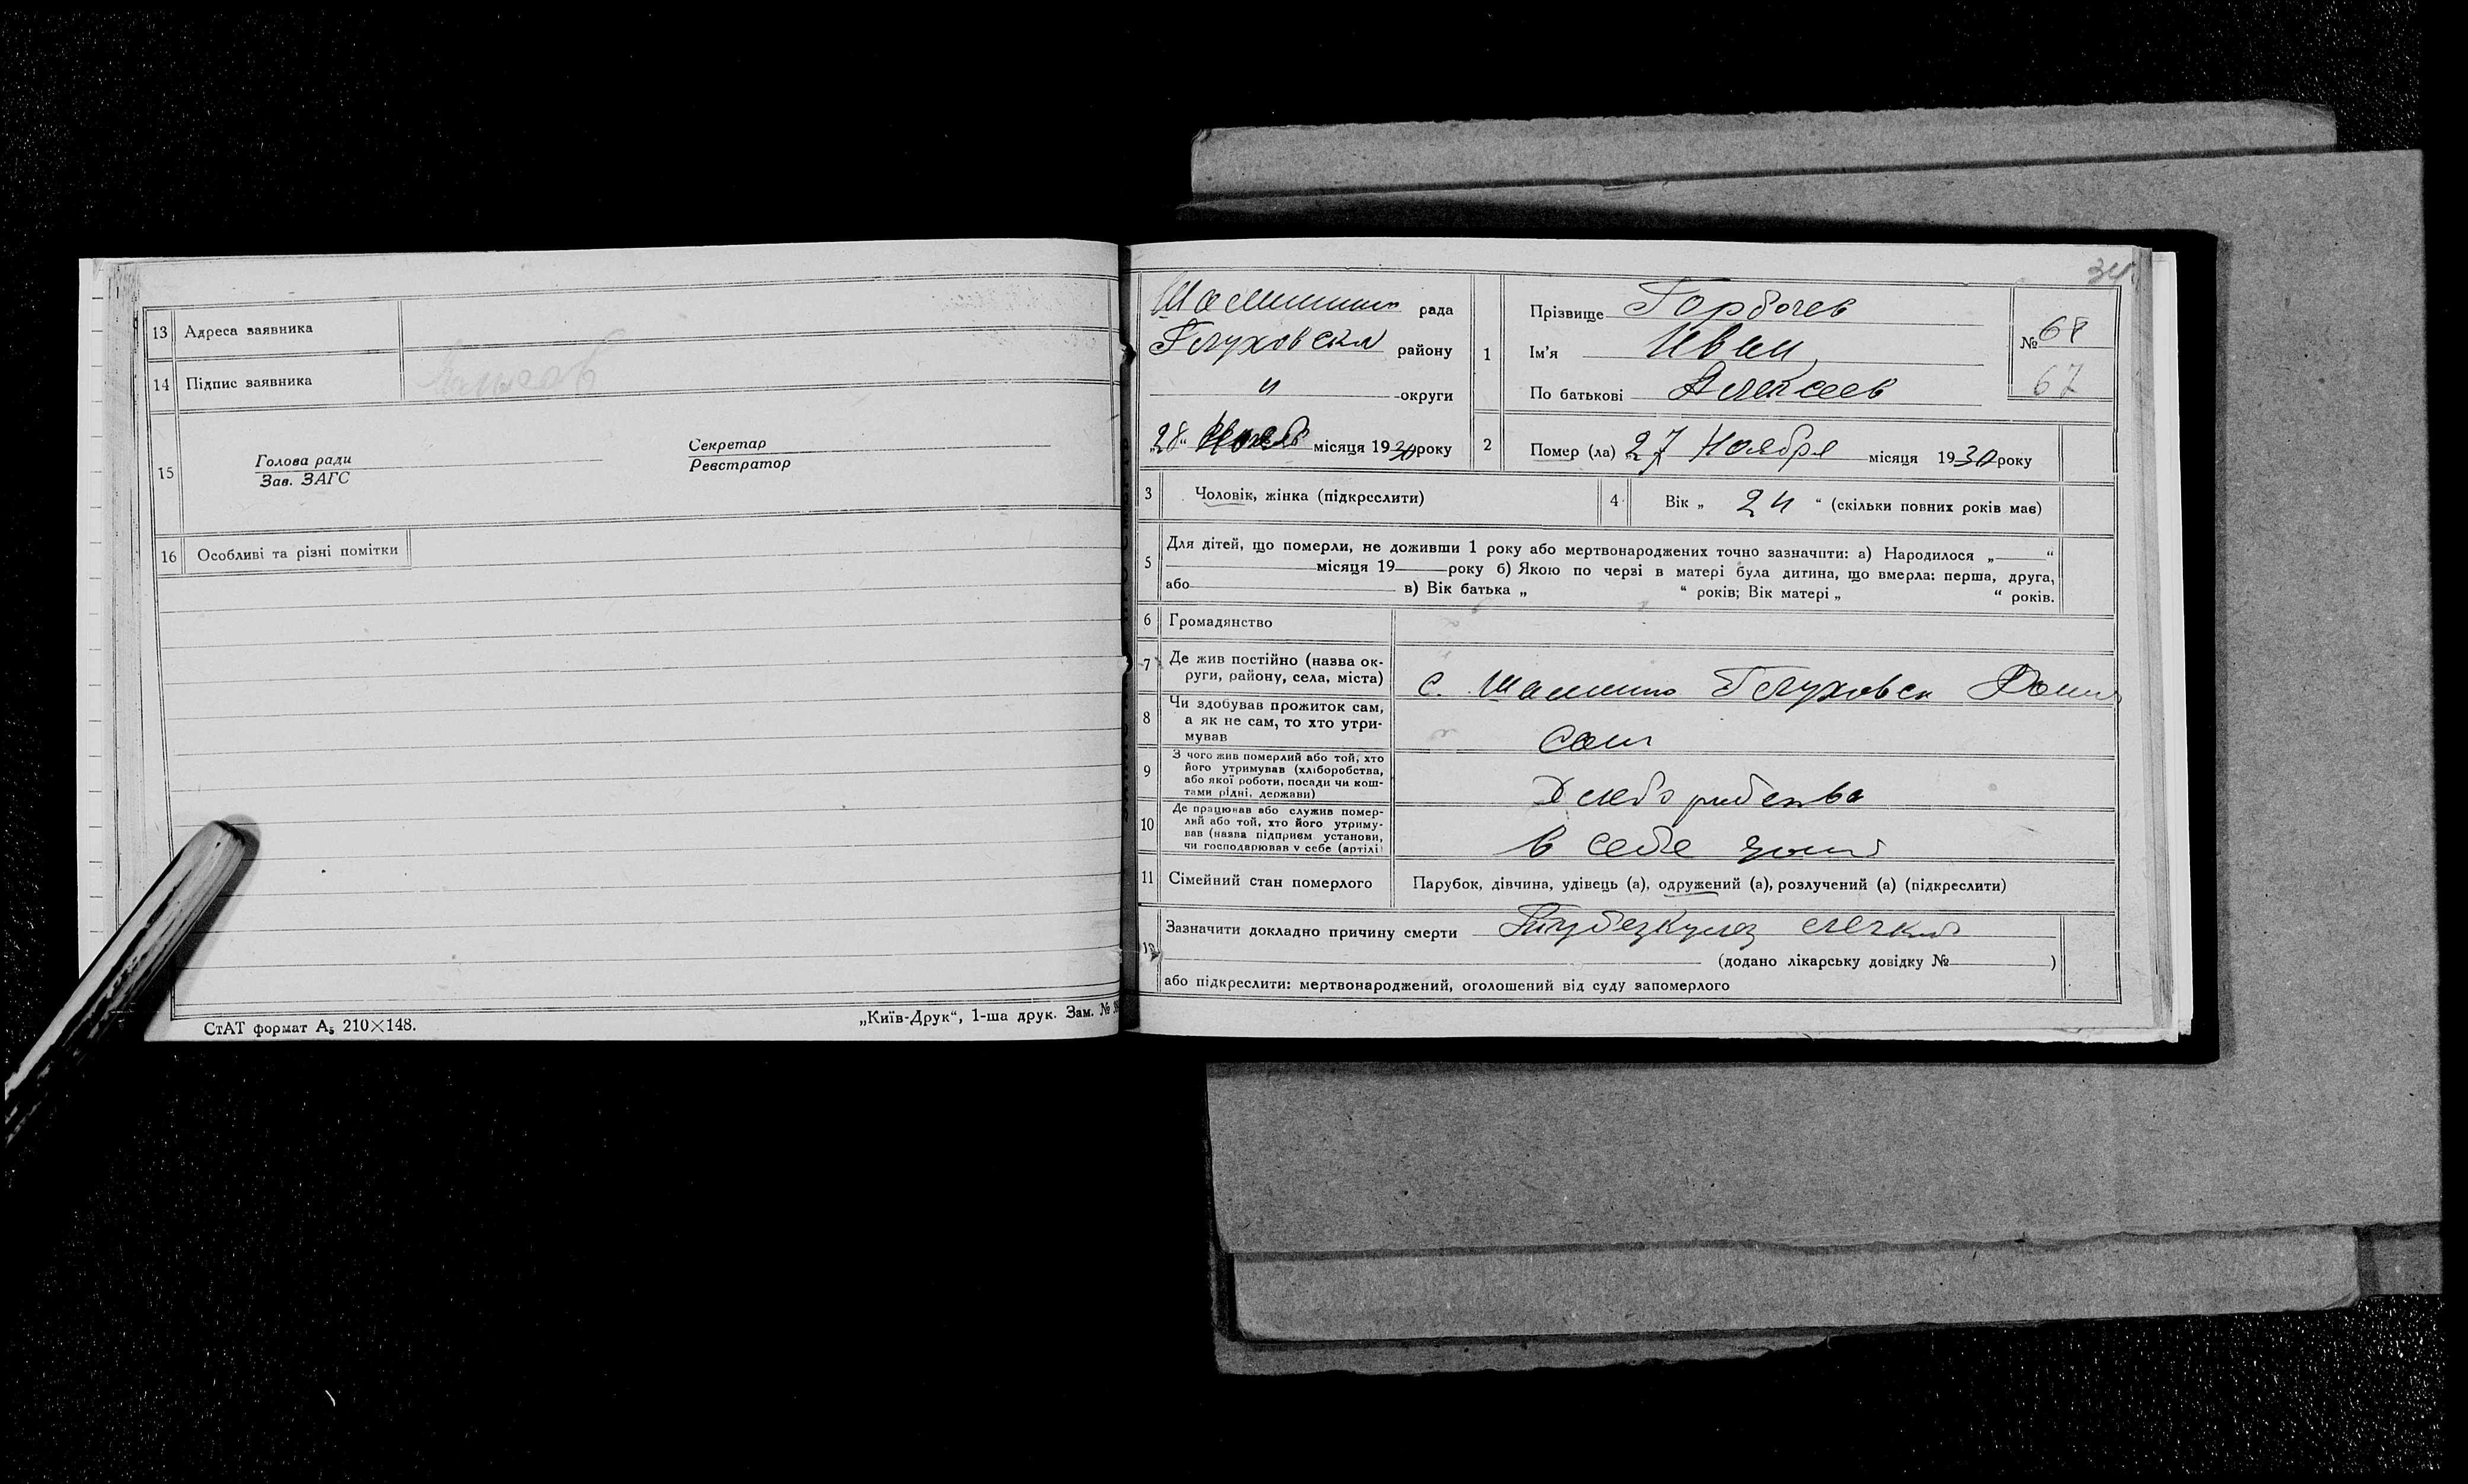 13 Адреса заявника
14 Підпис заявника
15 Голова ради
Зав. ЗАГС
Секретар
Реєстратор
16 Особливі та різні помітки
СтАТ формат А5 210×148.
„Київ-Друк“, 1-ша друк. Зам. №
34
рада
району
„ округи
„28“ місяця 1930 року
1 Прізвище Горбочев
Ім'я Иван
По батькові Алексеев
№ 68
67
2 Помер (ла) „27 Ноября місяця 1930 року
3 Чоловік, жінка (підкреслити)
4 Вік „ “ (скільки повних років мав)
5 Для дітей, що померли, не доживши 1 року або мертвонароджених точно зазначити: а) Народилося „ “
місяця 19 року б) Якою по черзі в матері була дитина, що вмерла: перша, друга,
або в) Вік батька „ “ років; Вік матері „ “ років.
6 Громадянство
7 Де жив постійно (назва ок-
руги, району, села, міста)
с. Глуховск
8 Чи здобував прожиток сам,
а як не сам, то хто утри-
мував
сам
9 З чого жив померлий або той, хто
його утримував (хліборобства,
або якої роботи, посади чи кош-
тами рідні, держави)
10 Де працював або служив помер-
лий або той, хто його утриму-
вав (назва підприєм. установи,
чи господарював у себе (артілі)
в себе
11 Сімейний стан померлого
Парубок, дівчина, удівець (а), одружений (а), розлучений (а) (підкреслити)
12 Зазначити докладно причину смерти
(додано лікарську довідку № )
або підкреслити: мертвонароджений, оголошений від суду запомерлого